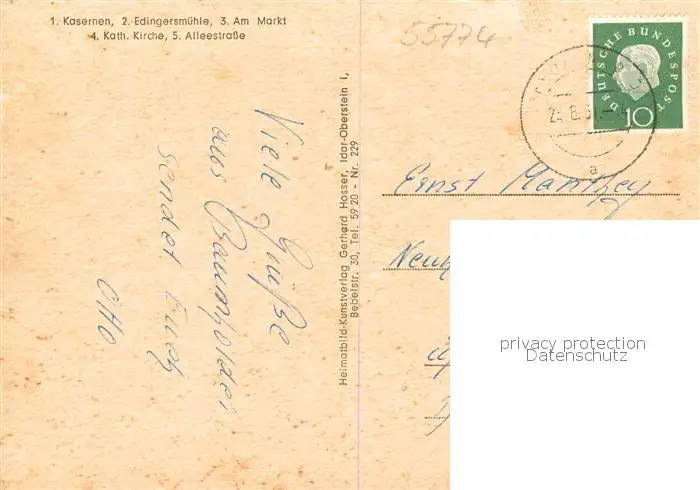 1. Kasernen, 2. Edingersmühle, 3. Am Markt
4. Kath. Kirche, 5. Alleestraße
55774
DEUTSCHE BUNDESPOST
10
a
Viele Grüße
aus Baumholder
sendet Euch
Otto
Heimatbild-Kunstverlag Gerhard Hosser, Idar-Oberstein 1,
Bebelstr. 30, Tel. 59 20 - Nr. 229
Ernst Manthey
privacy protection
Datenschutz